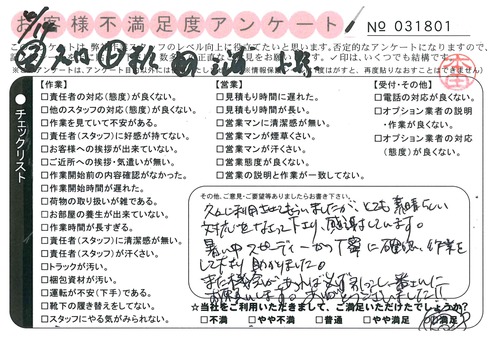 お客様不満足度アンケート
No 031801
チェックリスト
【作業】
□責任者の対応(態度)が良くない。
□他のスタッフの対応(態度)が良くない。
□作業を見ていて不安がある。
□責任者(スタッフ)に好感が持てない。
□お客様への挨拶が出来ていない。
□ご近所への挨拶・気遣いが無い。
□作業開始前の内容確認がなかった。
□作業開始時間が遅れた。
□荷物の取り扱いが雑である。
□お部屋の養生が出来ていない。
□作業時間が長すぎる。
□責任者(スタッフ)に清潔感が無い。
□責任者(スタッフ)が汗くさい。
□トラックが汚い。
□梱包資材が汚い。
□運転が不安(下手)である。
□靴下の履き替えをしてくれない。
□スタッフにやる気がみられない。
【営業】
□見積もり時間に遅れた。
□見積もり時間が長い。
□営業マンに清潔感が無い。
□営業マンが煙草くさい。
□営業マンが汗くさい。
□営業態度が良くない。
□営業の説明と作業が一致してない。
【受付・その他】
□電話の対応が良くない。
□オプション業者の説明
・作業が良くない。
□オプション業者の対応
(態度)が良くない。
その他、ご意見・ご要望等ありましたらお書き下さい。
久しに利用させてもらいましたが、とても素晴らしい
対応をなさって下さり、感謝しています。
暑い中スピーディーかつ丁寧に確認、作業を
して下さり助かりました。
また機会があれば必ず引っこし一番さんに
お願いします。ありがとうございました!!
☆当社をご利用いただきまして、ご満足いただけたでしょうか?
□不満 □やや不満 □普通 □やや満足 □満足